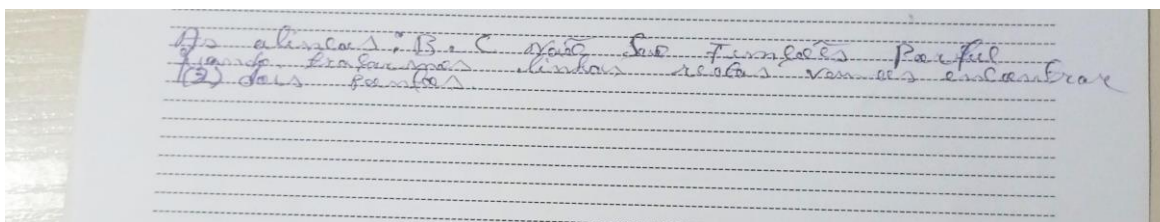 As alineas: B. C não São Funções Porque
quando traçarmos linhas rectas vamos encontrar
(2) dois pontos.